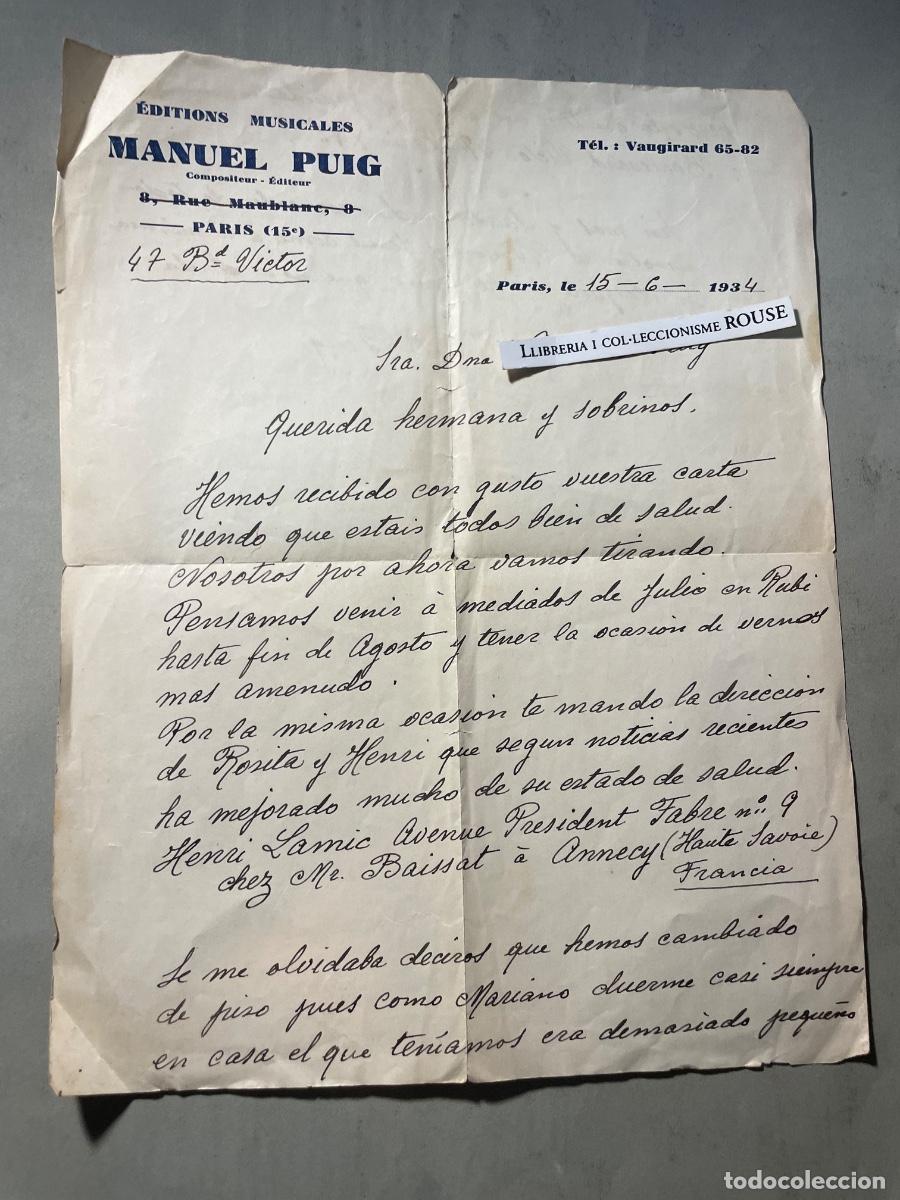 ÉDITIONS MUSICALES
MANUEL PUIG
Compositeur - Éditeur
8, Rue Maublanc, 8
PARIS (15e)
47 Bd Victor
Tél. : Vaugirard 65-82
Paris, le 15-6- 1934
LLIBRERIA I COL·LECCIONISME ROUSE
Sra. Dna Puig
Querida hermana y sobrinos.
Hemos recibido con gusto vuestra carta
viendo que estais todos bien de salud.
Nosotros por ahora vamos tirando.
Pensamos venir à mediados de Julio en Rubi
hasta fin de Agosto y tener la ocasión de vernos
mas amenudo.
Por la misma ocasion te mando la dirección
de Rosita y Henri que segun noticias recientes
ha mejorado mucho de su estado de salud.
Henri Lamic Avenue President Fabre no. 9
chez Mr. Baissat à Annecy (Haute Savoie)
Francia
Se me olvidaba deciros que hemos cambiado
de piso pues como Mariano duerme casi siempre
en casa el que teníamos era demasiado pequeño
todocoleccion